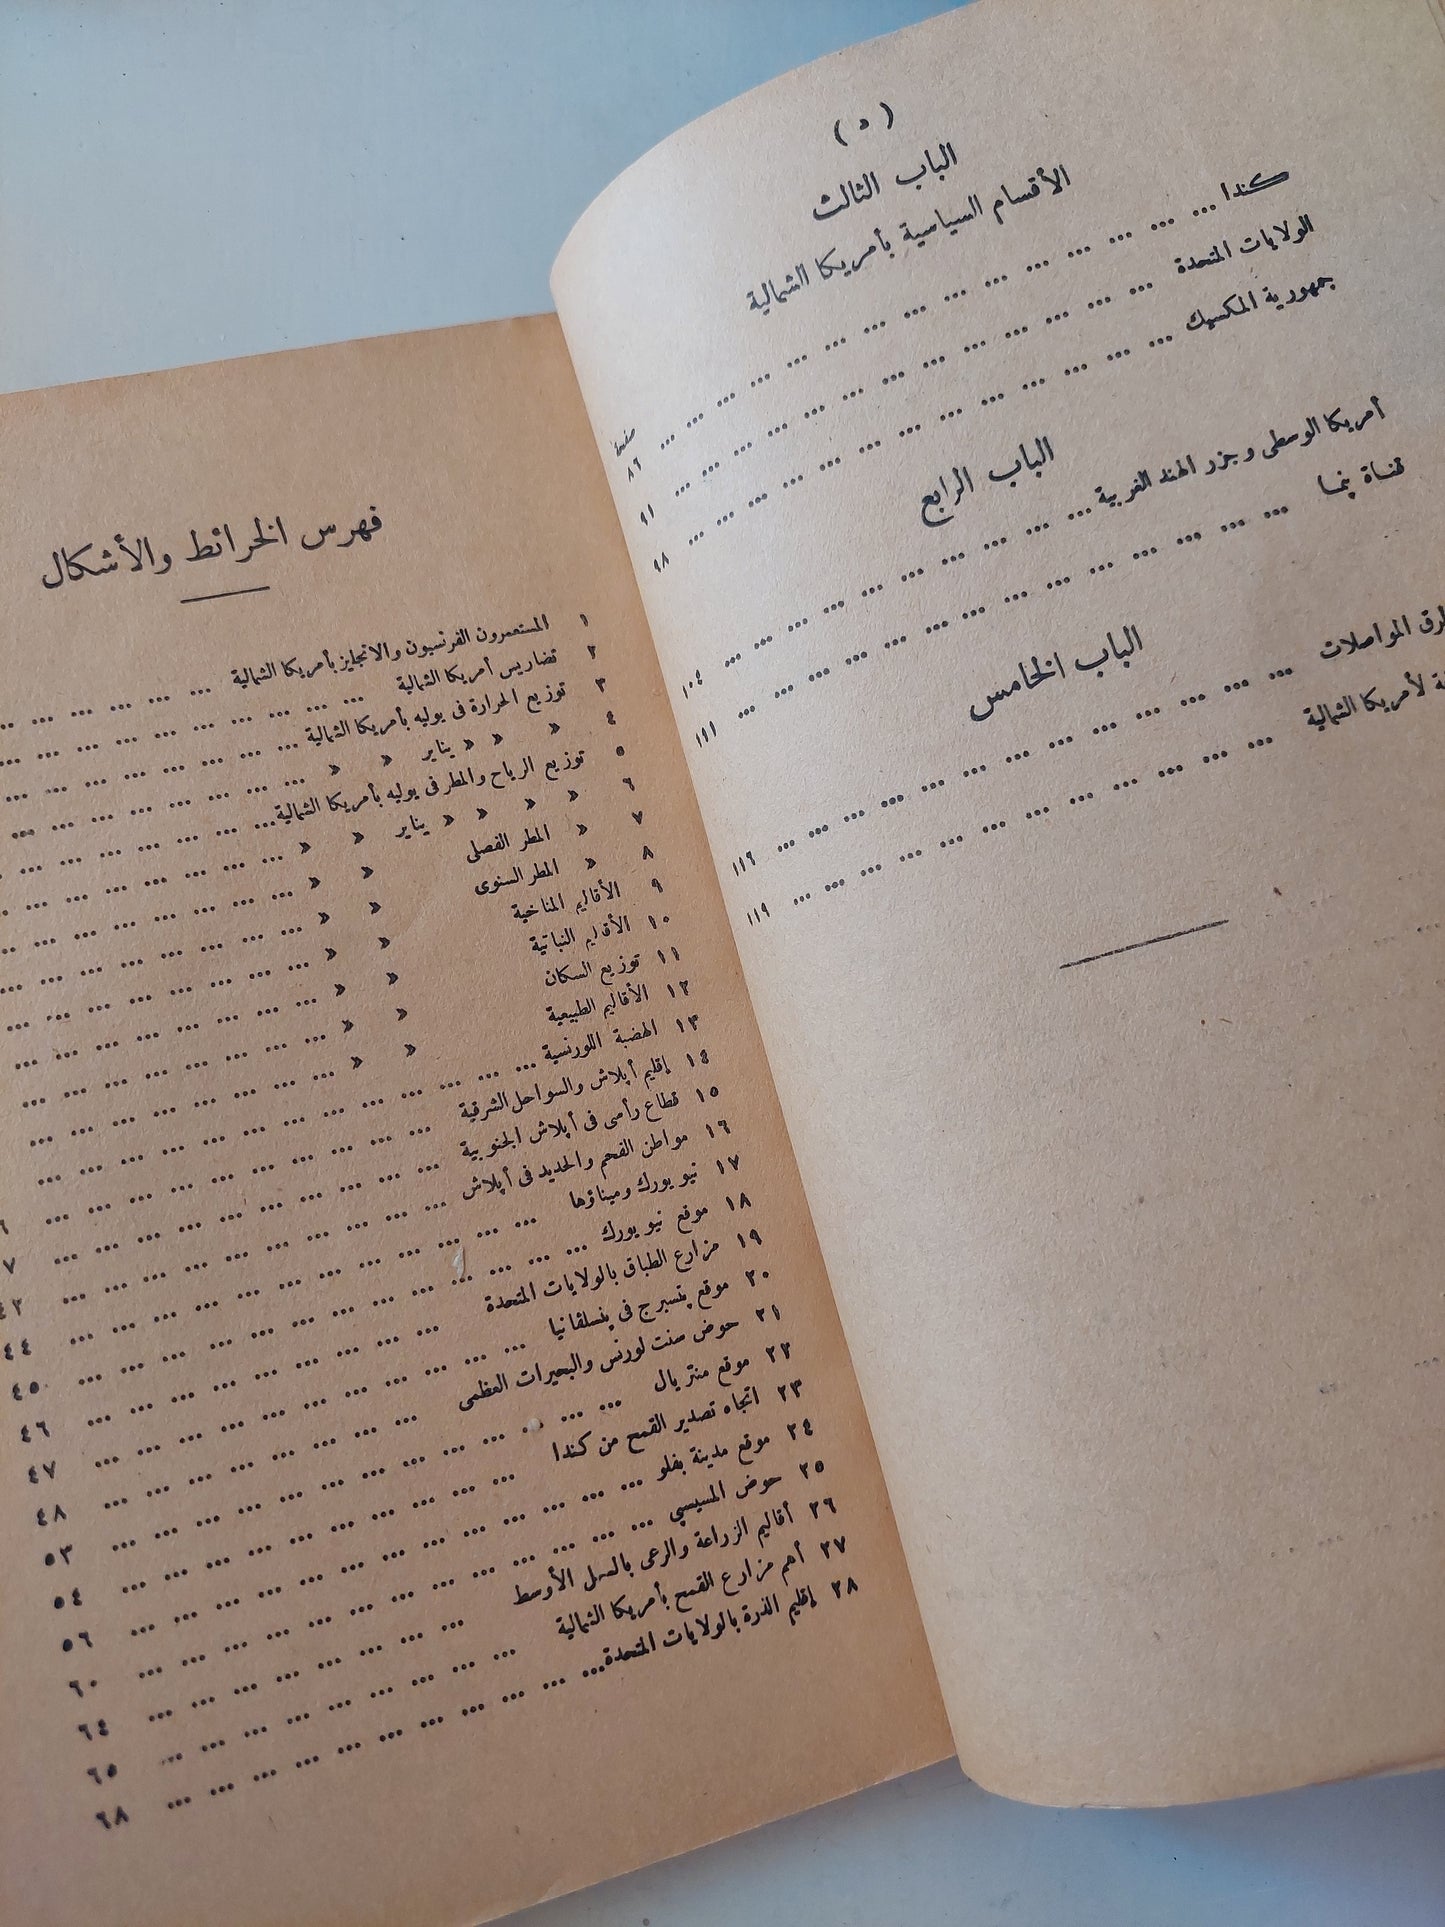 (٥)
الباب الثالث
الأقسام السياسية بأمريكا الشمالية
صفحة
كندا ... ... ... ... ... ... ... ... ... ... ... ... ... ٨٦
الولايات المتحدة ... ... ... ... ... ... ... ... ... ... ... ... ٩١
جمهورية المكسيك ... ... ... ... ... ... ... ... ... ... ... ... ٩٨
الباب الرابع
أمريكا الوسطى وجزر الهند الغربية ... ... ... ... ... ... ... ... ... ١٠٤
قناة بنما ... ... ... ... ... ... ... ... ... ... ... ... ... ١١١
الباب الخامس
المواصلات ... ... ... ... ... ... ... ... ... ... ... ... ١١٦
لأمريكا الشمالية ... ... ... ... ... ... ... ... ... ... ... ... ١١٩
فهرس الخرائط والأشكال
١ المستعمرون الفرنسيون والانجليز بأمريكا الشمالية ... ... ... ... ... ...
٢ تضاريس أمريكا الشمالية ... ... ... ... ... ... ... ... ... ...
٣ توزيع الحرارة فى يوليه بأمريكا الشمالية ... ... ... ... ... ... ... ...
٤ » » » يناير » » ... ... ... ... ... ... ... ...
٥ توزيع الرياح والمطر فى يوليه بأمريكا الشمالية ... ... ... ... ... ... ...
٦ » » » » يناير » » ... ... ... ... ... ... ...
٧ » المطر الفصلى » » ... ... ... ... ... ... ... ...
٨ » المطر السنوى » » ... ... ... ... ... ... ... ...
٩ الأقاليم المناخية » » ... ... ... ... ... ... ... ...
١٠ الأقاليم النباتية » » ... ... ... ... ... ... ... ...
١١ توزيع السكان » » ... ... ... ... ... ... ... ...
١٢ الأقاليم الطبيعية » » ... ... ... ... ... ... ... ...
١٣ الهضبة اللورنسية ... ... ... ... ... ... ... ... ... ... ... ...
١٤ إقليم أپلاش والسواحل الشرقية ... ... ... ... ... ... ... ... ... ...
١٥ قطاع رأسى فى أپلاش الجنوبية ... ... ... ... ... ... ... ... ... ...
١٦ مواطن الفحم والحديد فى أپلاش ... ... ... ... ... ... ... ... ... ٤٣
١٧ نيو يورك وميناؤها ... ... ... ... ... ... ... ... ... ... ... ... ٤٤
١٨ موقع نيو يورك ... ... ... ... ... ... ... ... ... ... ... ... ٤٥
١٩ مزارع الطباق بالولايات المتحدة ... ... ... ... ... ... ... ... ... ٤٦
٢٠ موقع پتسبرج فى پنسلڤانيا ... ... ... ... ... ... ... ... ... ... ٤٧
٢١ حوض سنت لورنس والبحيرات العظمى ... ... ... ... ... ... ... ... ٤٨
٢٢ موقع منتريال ... ... ... ... ... ... ... ... ... ... ... ... ٥٣
٢٣ اتجاه تصدير القمح من كندا ... ... ... ... ... ... ... ... ... ... ٥٤
٢٤ موقع مدينة بفلو ... ... ... ... ... ... ... ... ... ... ... ... ٥٦
٢٥ حوض المسيسبي ... ... ... ... ... ... ... ... ... ... ... ... ٦٠
٢٦ أقاليم الزراعة والرعى بالسهل الأوسط ... ... ... ... ... ... ... ... ٦٤
٢٧ أهم مزارع القمح بأمريكا الشمالية ... ... ... ... ... ... ... ... ... ٦٥
٢٨ إقليم الذرة بالولايات المتحدة ... ... ... ... ... ... ... ... ... ... ٦٨